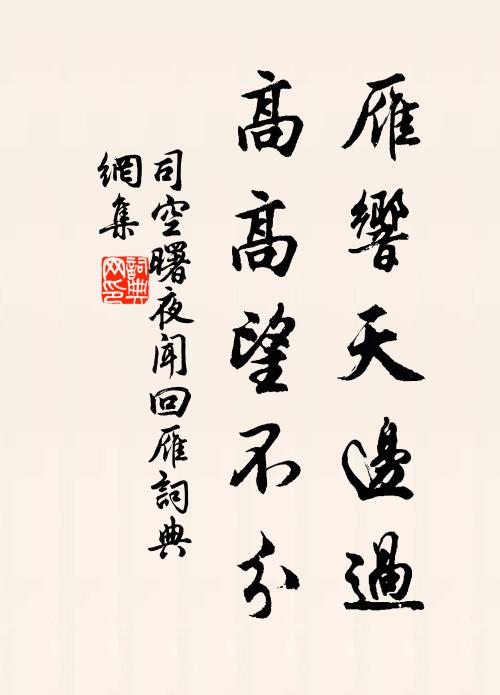 雁響天邊過
高高望不分
司空曙夜聞回雁詞典
網集
詞典
网印